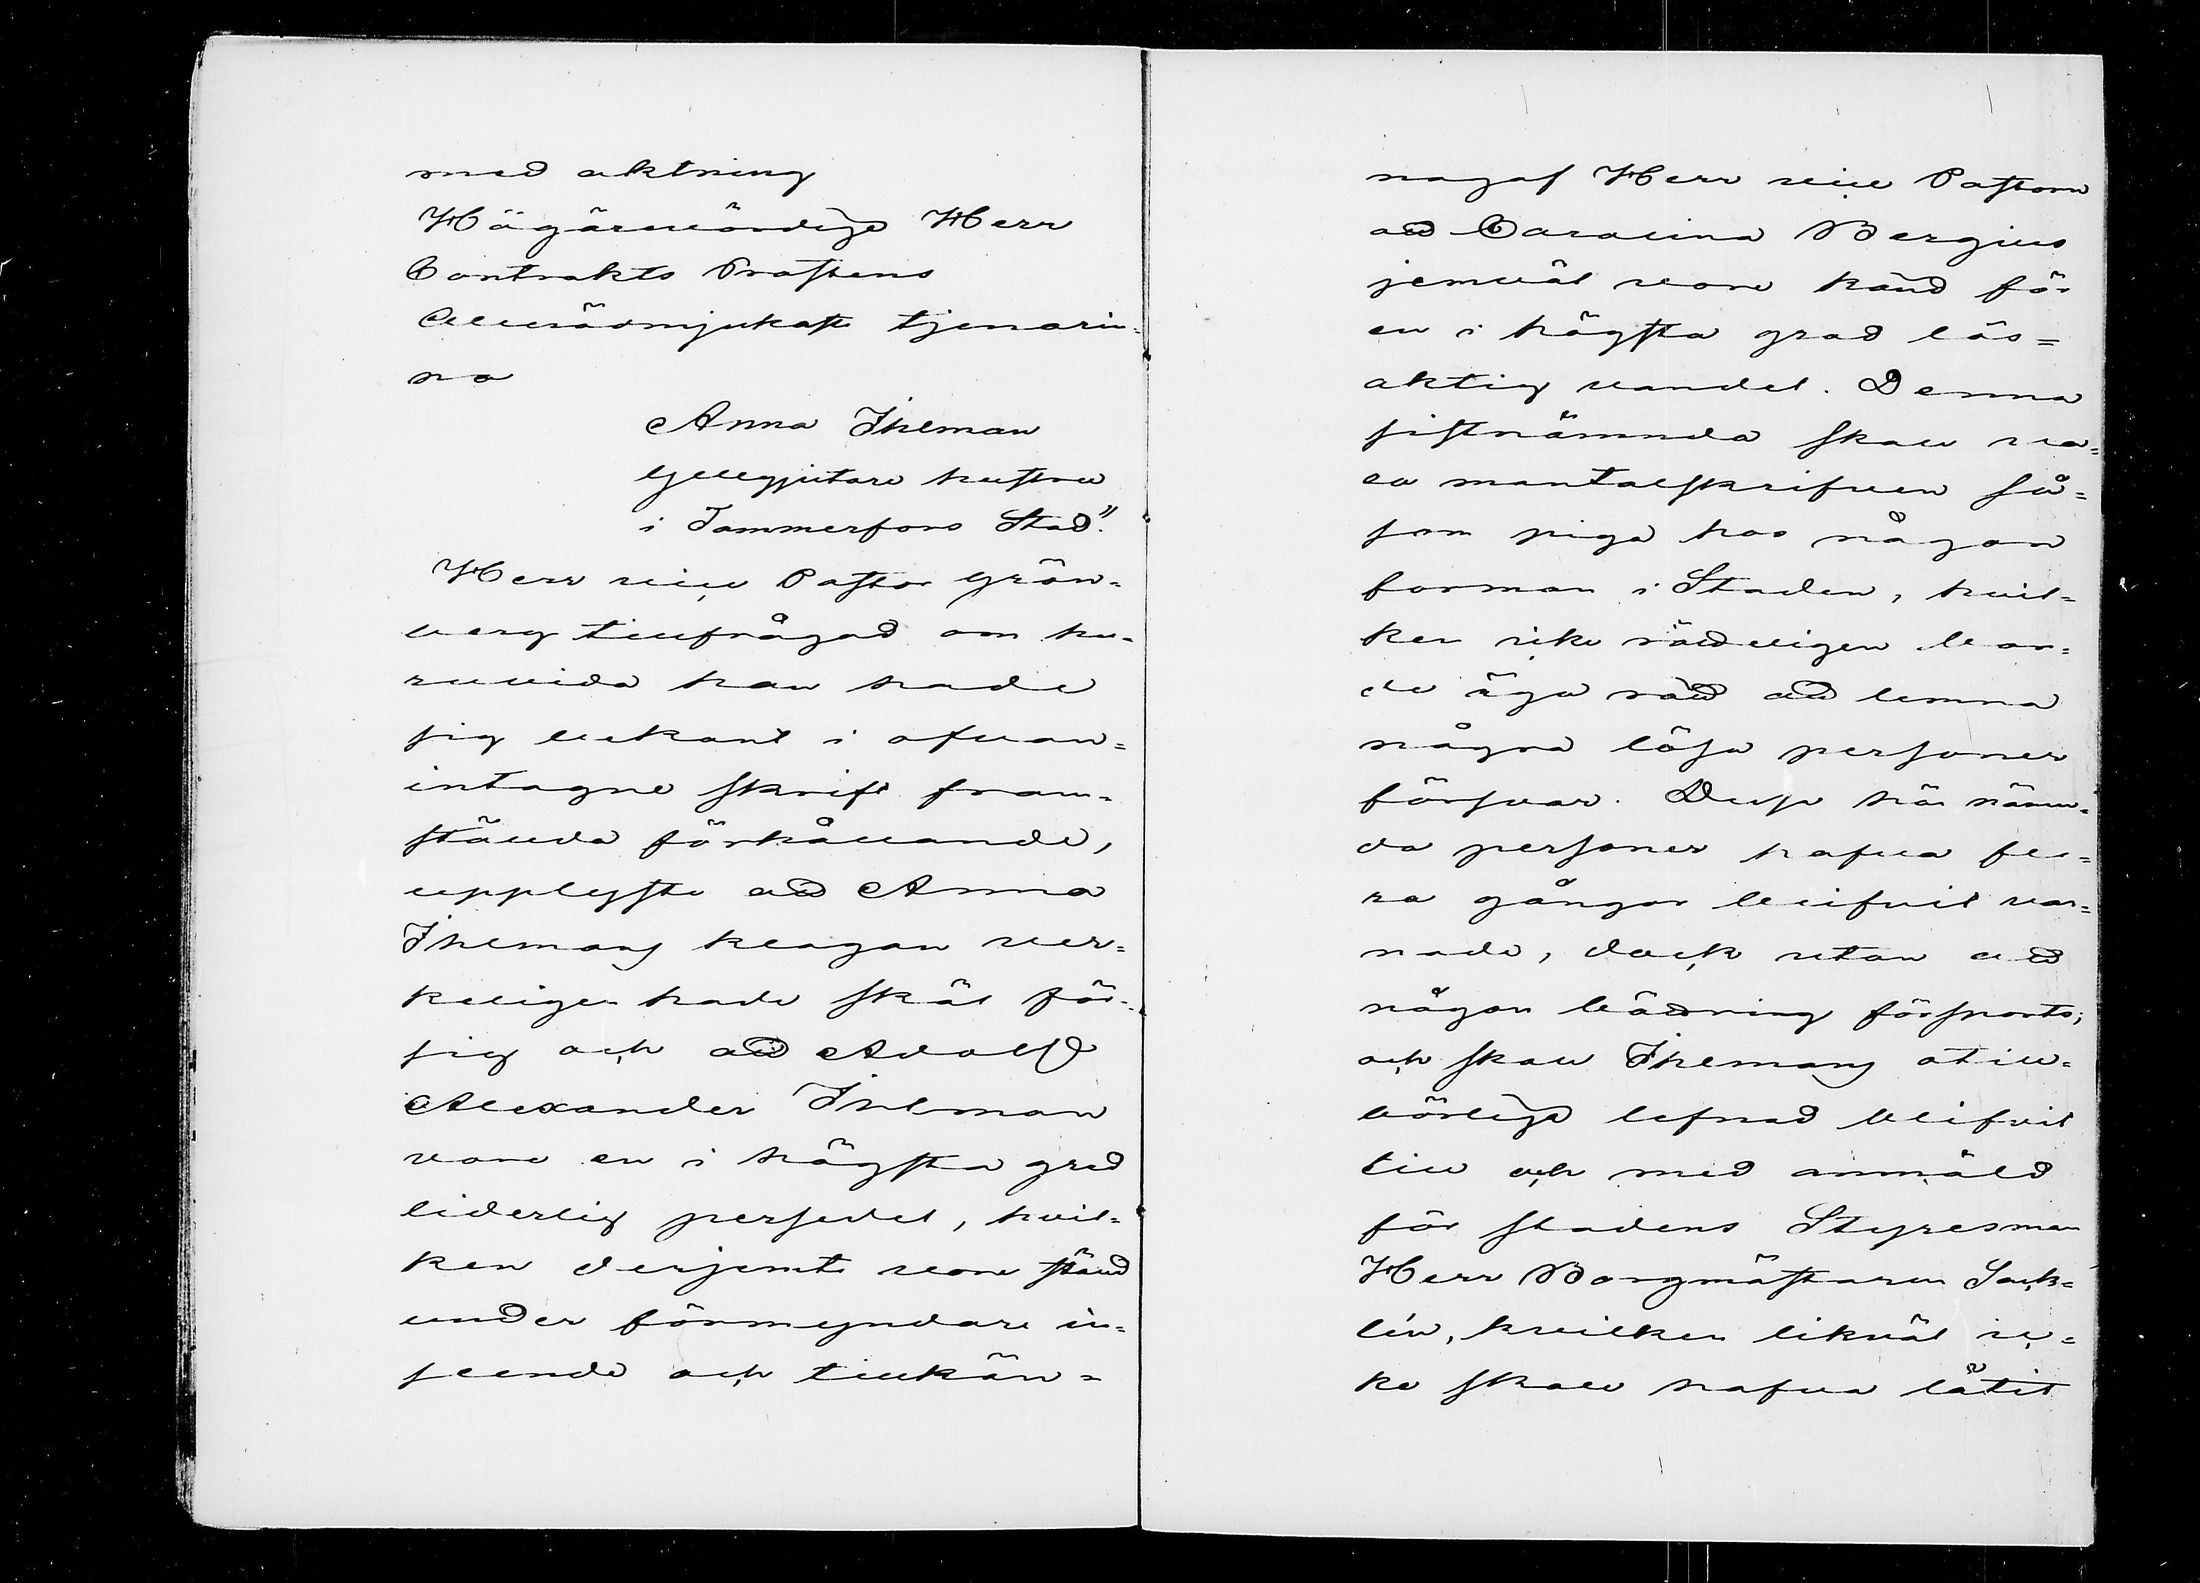 med aktning
Högärevördige Herr
Contrakts Prostens
Allraödmjukaste tjenarin-
na
Anna Ihlman
Gellegjutare hustru
i Tammerfors Stad."
Herr vice Pastor Grön-
berg tillfrågad om hu-
ruvida han hade
sig bekant i ofvan-
intagne skrift fram-
stälda förhållande,
upplyste att Anna
Ihlmans klagan ver-
kligen hade skäl för
sig och att Adolf
Alexander Ihlman
vore en i högsta grad
liderlig persedel, hvil-
ken derjemte vore stäld
under förmyndare in-
seende och tillkän-
nagaf Herr vice Pastorn
att Carolina Bergius
jemväl vore känd för
en i högsta grad lös-
aktig vandel. Denna
sistnämnda skall va-
ra mantalskrifven så-
som piga hos någon
forman i Staden, hvil-
ken icke rätteligen bor-
de äga rätt att lemna
några lösa personer
försvar. Desse här nämn-
da personer hafva fle-
ra gångor blifvit var-
nade, dock utan att
någon bättring försports;
och skall Ihlmans otill-
börliga lefnad blifvit
till och med anmäld
för stadens Styresman
Herr Borgmästaren Sack-
lén, hvilken likväl ic-
ke skall hafva låtit